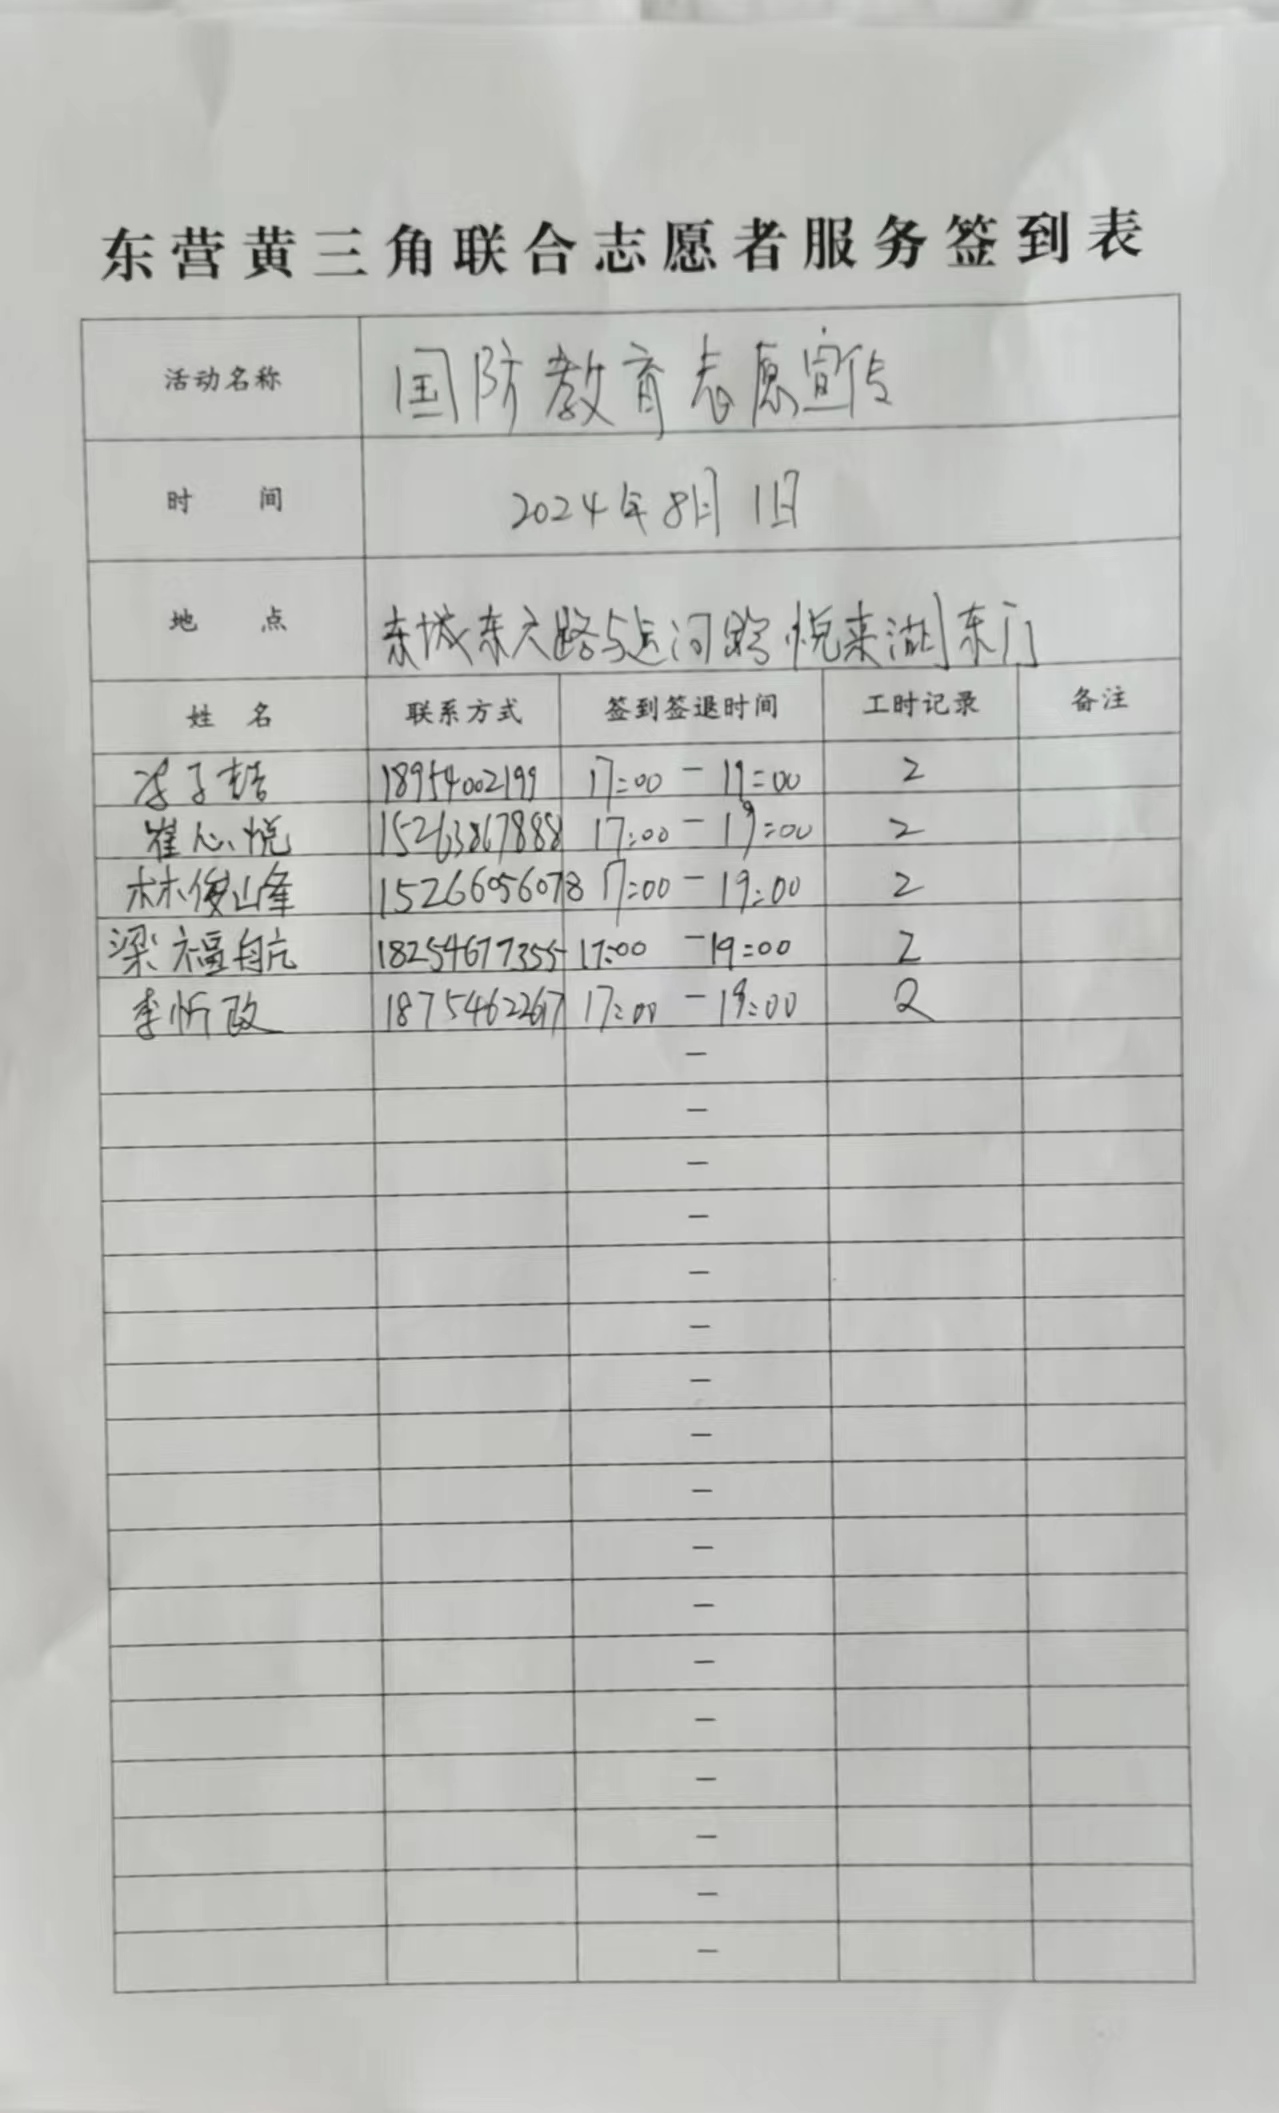 东营黄三角联合志愿者服务签到表
活动名称 国防教育志愿宣传
时 间 2024年8月1日
地 点 东城东六路与运河路 悦来湖东门
姓 名 联系方式 签到签退时间 工时记录 备注
18954002199 17:00 - 19:00 2
崔心悦 15263867888 17:00 - 19:00 2
林俊山峰 15266056078 17:00 - 19:00 2
梁福航 18254677355 17:00 - 19:00 2
李忻政 18754622617 17:00 - 19:00 2
-
-
-
-
-
-
-
-
-
-
-
-
-
-
-
-
-